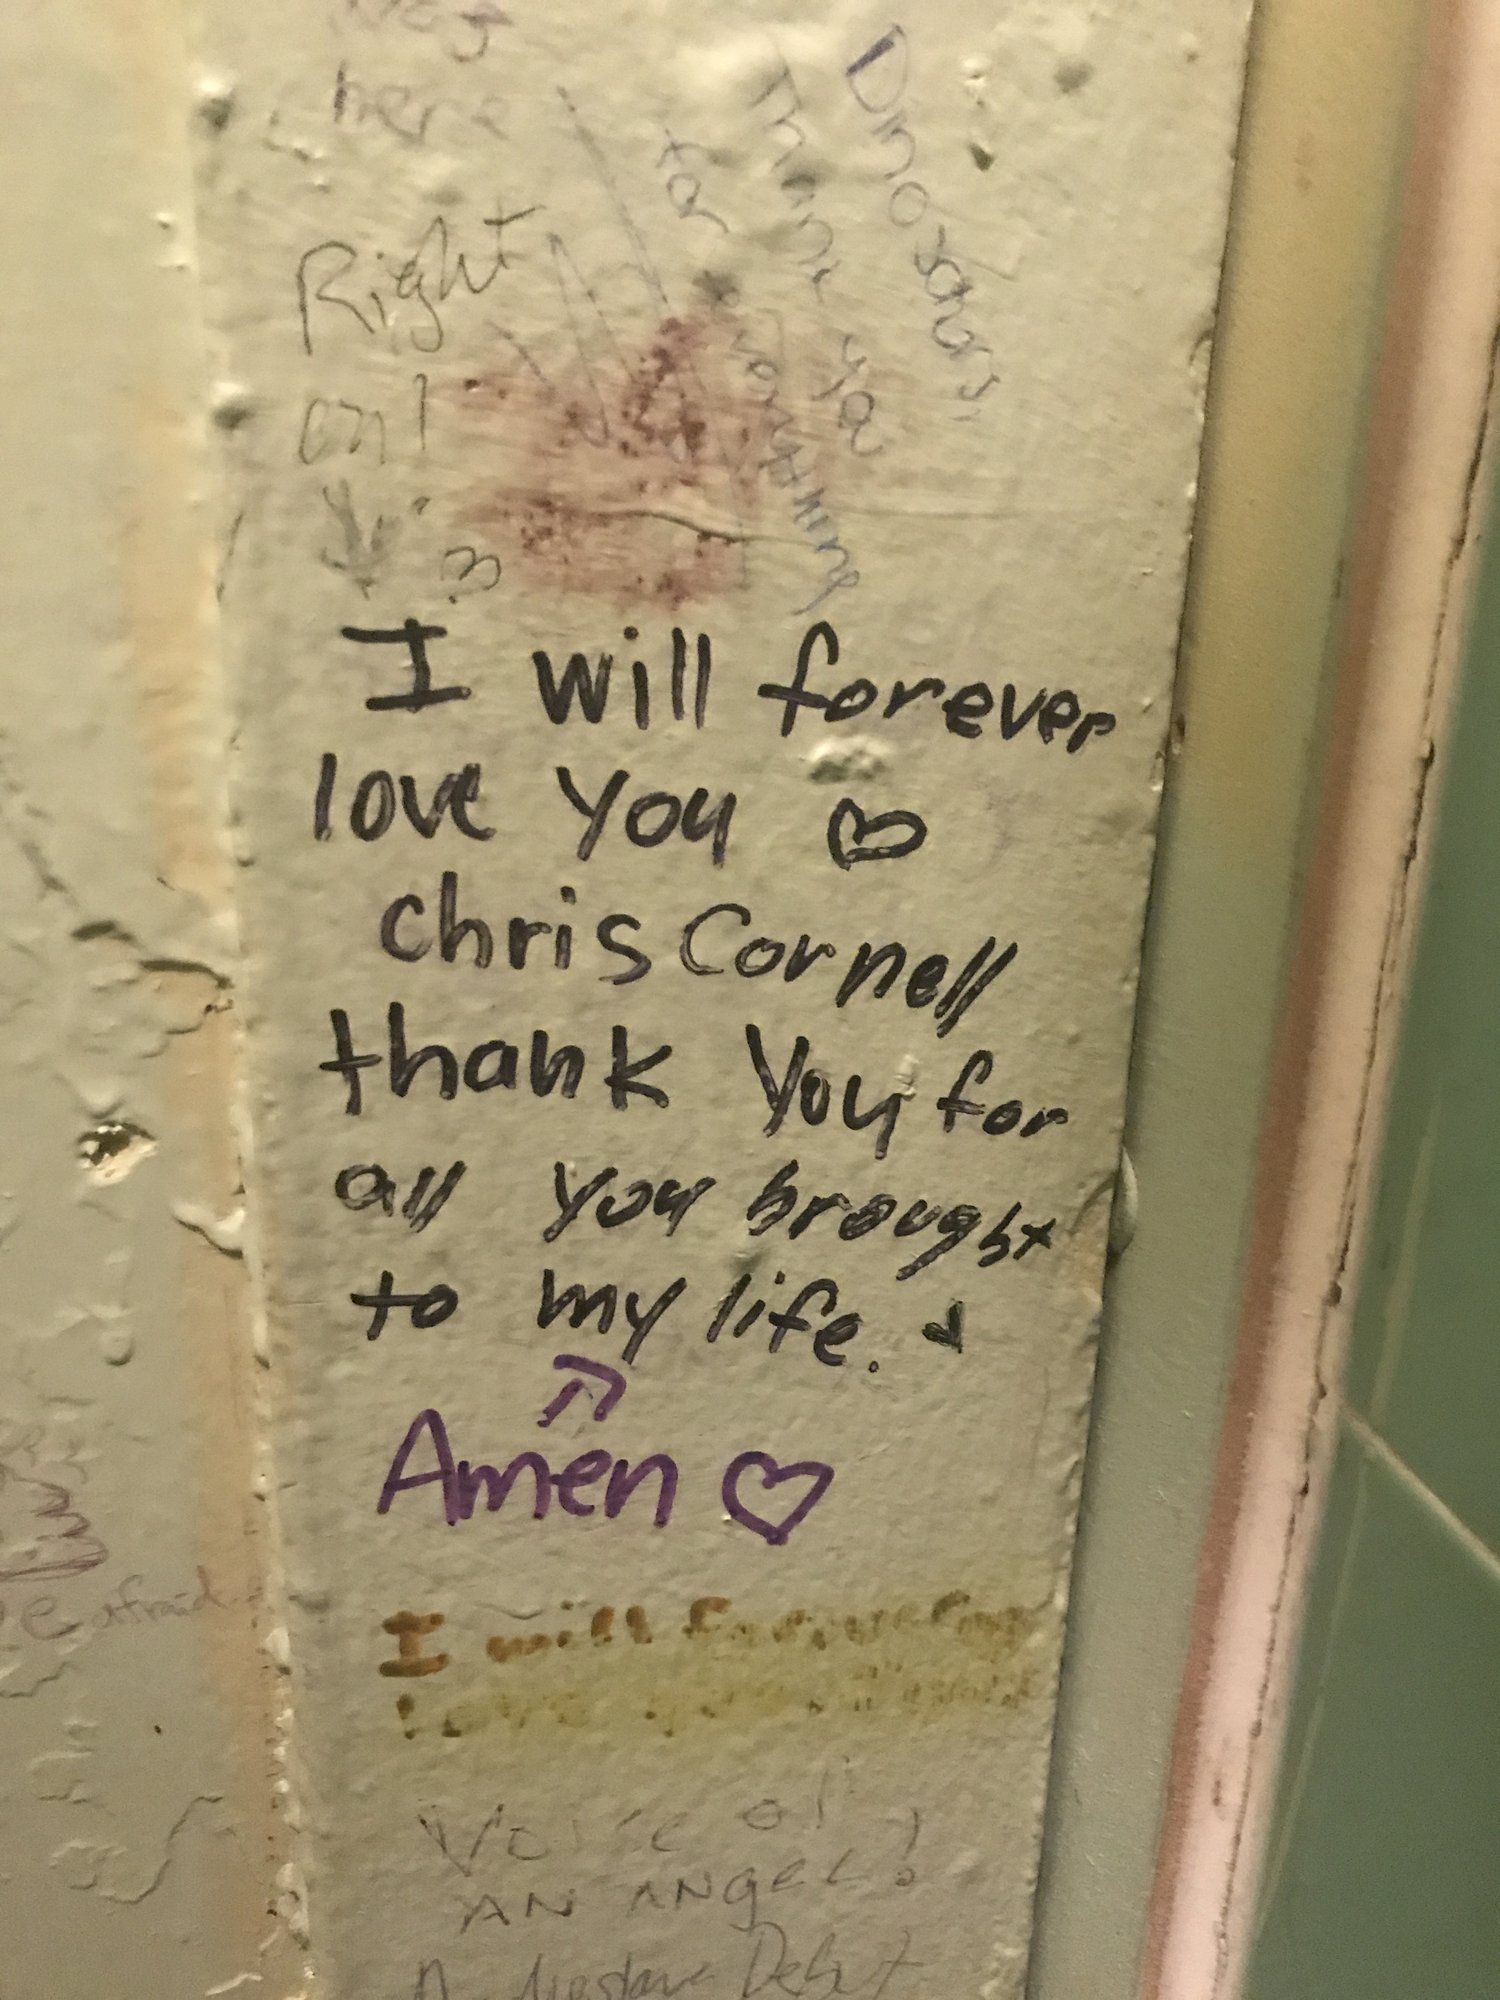 here
Dinosaurs,
Thank ya
for
everything
Right
on!
I will forever
love you
Chris Cornell
thank you for
all you brought
to my life.
Amen
afraid
I will forever
love you
Voice of
AN ANGEL!
Audioslave Debut